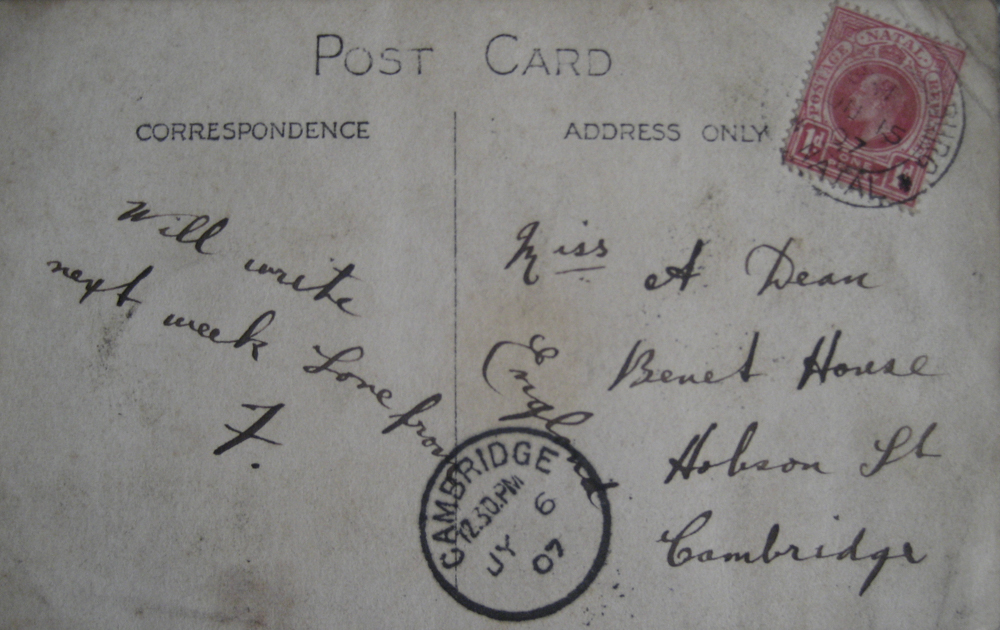 POST CARD
CORRESPONDENCE
ADDRESS ONLY
POSTAGE NATAL REVENUE
1d 1d
15
07
NATAL
Will write
next week Love from
F.
Miss A. Dean
Benet House
Hobson St
Cambridge
England
CAMBRIDGE
12.30.PM
JY 6
07